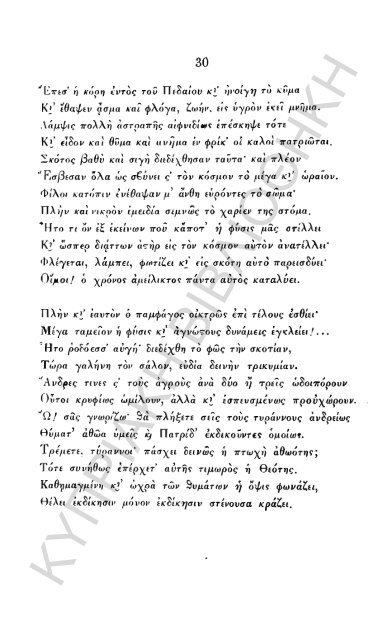 30
Ἔπεσ' ἡ κόρη ἐντὸς τοῦ Πεδαίου κι' ἠνοίγη τὸ κῦμα
Κι' ἔθαψεν ᾆσμα καὶ φλόγα, ζωὴν, εἰς ὑγρὸν ἐκεῖ μνῆμα.
Λάμψις πολλὴ ἀστραπῆς αἰφνιδίως ἐπέσκηψε τότε
Κι' εἶδον καὶ θῦμα καὶ μνῆμα ἐν φρίκ' οἱ καλοὶ πατριῶται.
Σκότος βαθὺ καὶ σιγὴ διεδέχθησαν ταῦτα· καὶ πλέον
Ἔσβεσαν ὅλα ὡς σβύνει ς τὸν κόσμον τὸ μέγα κι' ὡραῖον.
Φίλοι κατόπιν ἐνέθαψαν μ' ἄνθη εὑρόντες τὸ σῶμα·
Πλὴν καὶ νικρὸν ἐμειδία σιμνῶς τὸ χαρίεν της στόμα.
Ἦτο τι ὂν ἐξ ἐκείνων ποῦ κάποτ' ἡ φύσις μᾶς στίλλει
Κι' ὥσπερ διᾴττων ἀστὴρ εἰς τὸν κόσμον αὐτὸν ἀνατίλλει·
Φλέγεται, λάμπει, φωτίζει κι' εἰς σκότη αὐτὸ παρεισδύει·
Οἴμοι! ὁ χρόνος ἀμείλικτος πάντα αὐτὸς καταλύει.
Πλὴν κι' ἑαυτὸν ὁ παμφάγος οἰκτρῶς ἐπὶ τέλους ἐσθίει·
Μέγα ταμεῖον ἡ φύσις κι' ἀγνώτους δυνάμεις ἐγκλείει!...
Ἦτο ῥοδόεσσ' αὐγή· διεδέχθη τὸ φῶς τὴν σκοτίαν,
Τώρα γαλήνη τὸν σάλον, εὐδία δεινὴν τρικυμίαν.
Ἄνδρες τινες ς' τοὺς ἀγροὺς ἀνὰ δύο ἢ τρεῖς ὡδοιπόρουν
Οὗτοι κρυφίως ὡμίλουν, ἀλλὰ κι' ἐσπευσμένως προὐχώρουν.
Ὦ! σᾶς γνωρίζω· θὰ πλήξετε σεῖς τοὺς τυράννους ἀνδρείως
Θύματ' ἀθῶα ὑμεῖς κὴ Πατρίδ' ἐκδικοῦντες ὁμοίως.
Τρέμετε, τύραννοι· πάσχει δεινῶς ἡ πτωχὴ ἀθωότης;
Τότε συνήθως ἐπέρχετ' αὐτῆς τιμωρὸς ἡ Θεότης.
Καθημαγμένη κι' ὠχρὰ τῶν θυμάτων ἡ ὄψις φωνάζει,
Θέλει ἐκδίκησιν μόνον ἐκδίκησιν στένουσα κράζει.
ΚΥΠΡΙΑΚΗ ΒΙΒΛΙΟΘΗΚΗ